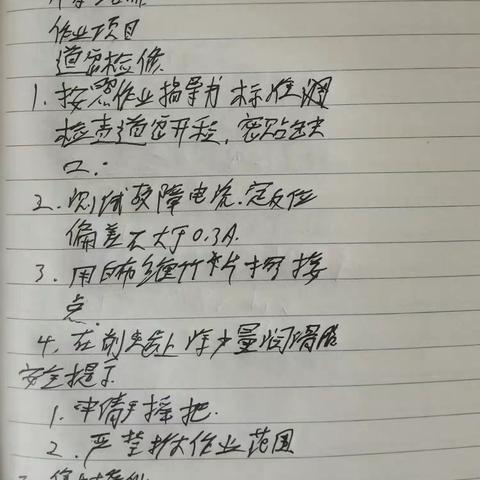 作业项目
道岔检修
1. 按照作业指导书标准调
检查道岔开程，密贴缺
口.
2. 测试故障电流.定反位
偏差不大于0.3A.
3. 用白布缠竹片擦接
点.
4. 在削尖上涂少量润滑脂
安全提示
1. 申请手摇把.
2. 严禁扩大作业范围